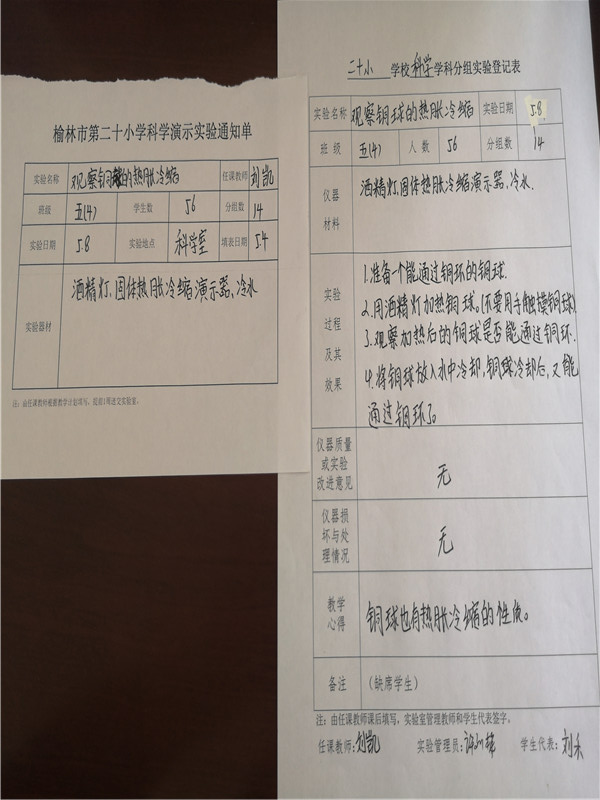 榆林市第二十小学科学演示实验通知单
实验名称 观察铜球的热胀冷缩 任课教师 刘凯
班级 五(4) 学生数 56 分组数 14
实验日期 5.8 实验地点 科学室 填表日期 5.4
实验器材 酒精灯,固体热胀冷缩演示器,冷水
注:由任课教师根据教学计划填写,提前1周送交实验室。
二十小 学校 科学 学科分组实验登记表
实验名称 观察铜球的热胀冷缩 实验日期 5.8
班级 五(4) 人数 56 分组数 14
仪器
材料
酒精灯,固体热胀冷缩演示器,冷水.
实验
过程
及其
效果
1.准备一个能通过铜环的铜球.
2.用酒精灯加热铜球。(不要用手触摸铜球)
3.观察加热后的铜球是否能通过铜环.
4.将铜球放入水中冷却,铜球冷却后,又能
通过铜环了。
仪器质量
或实验
改进意见
无
仪器损
坏与处
理情况
无
教学
心得
铜球也有热胀冷缩的性质。
备注 (缺席学生)
注:由任课教师课后填写,实验室管理教师和学生代表签字。
任课教师:刘凯 实验管理员: 学生代表:刘禾